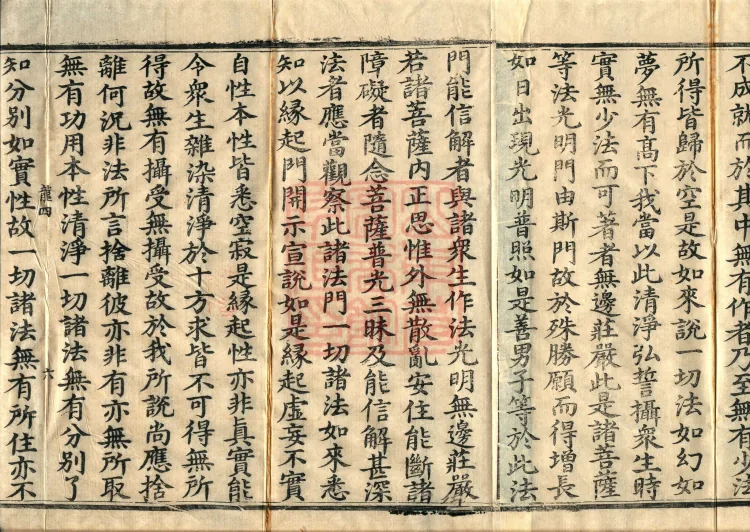 不成就而於其中無有作者乃至無有少法
所得皆歸於空是故如來說一切法如幻如
夢無有高下我當以此清淨弘誓攝衆生時
實無少法而可著者無邊莊嚴此是諸菩薩
等法光明門由斯門故於殊勝願而得增長
如日出現光明普照如是善男子等於此法
門能信解者與諸衆生作法光明無邊莊嚴
若諸菩薩內正思惟外無散亂安住能斷諸
障礙者隨念菩薩普光三昧及能信解甚深
法者應當觀察此諸法門一切諸法如來悉
知以緣起門開示宣說如是緣起虛妄不實
自性本性皆悉空寂是緣起性亦非真實能
令衆生雜染清淨於十方求皆不可得無所
得故無有攝受無攝受故於我所說尚應捨
離何況非法所言捨離彼亦非有亦無所取
無有功用本性清淨一切諸法無有分別了
龍四
六
知分別如實性故一切諸法無有所住亦不